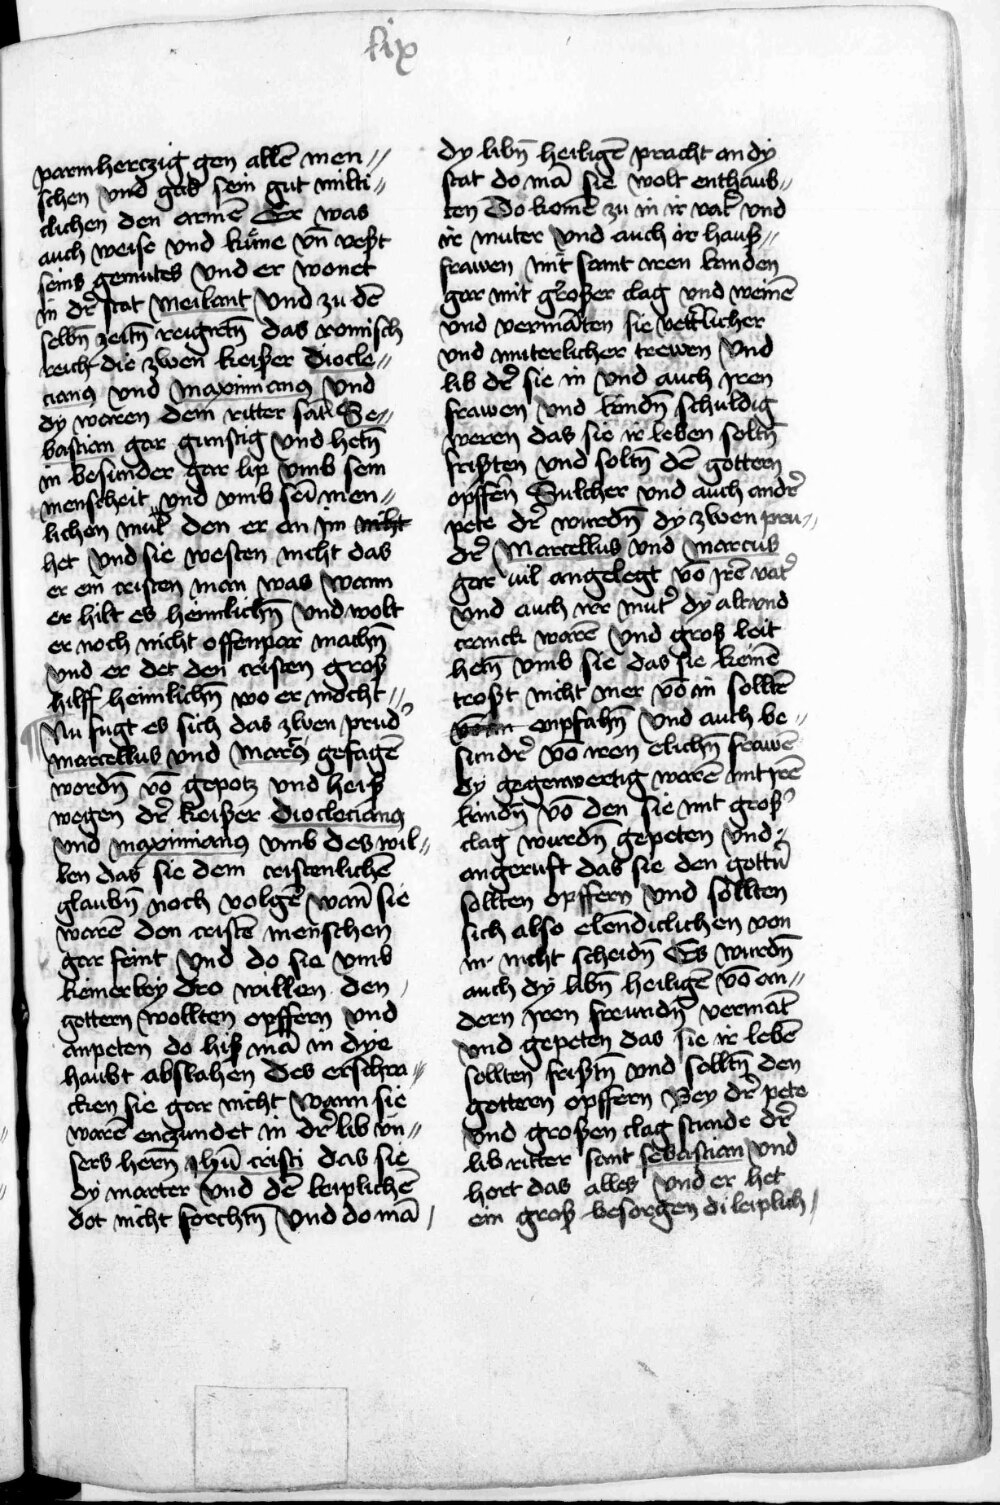 lix
parmhertzig gen allē men〃
schen vnd gab sein gut milti〃
clichen den armē Er was
auch weise vnd kune vn̄ vest
seins gemutes vnd er wonet
in dr̄ stat Meilant vnd zu dē
selbn̄ zeitn̄ reigirtn̄ das romisch
reich die zwen keißer Diocle〃
cianus vnd Maximianus vnd
dy waren dem ritter sāt Se〃
bastian gar gunstig vnd hetn̄
in besunder gar lip vmb sein
menscheit vnd vmb sei men〃
lichen mut den er an im nicht
het vnd sie westen nicht das
er ein cristen man was wann
er hilt es heimlichn̄ vnd wolt
er noch nicht offenpar machn̄
vnd er det den cristen groß
hilff heimlichn̄ wo er mocht〃
Nu fugt es sich das zwen prud̄
Marcellus vnd Marcus gefagē
wordn̄ vō gepotz vnd heiß
wegen dr̄ keißer Dioclocianus
vnd maximianus vmb des wil〃
len das sie dem cristenlichē
glaubn̄ noch volgē wan̄ sie
warē den cristē menschen
gar feint vnd do sie vmb
keinerley dro willen den
gottern wollten opffern vnd
anpeten do hiß mā in dye
haubt abslahen des erschra〃
cken sie gar nicht wann sie
warē enczundet in dr̄ lib vn〃
sers hern̄ ihū cristi das sie
dy marter vnd dē leiplichē
dot nicht forchtn̄ vnd do mā
dy libn̄ heiligē pracht an dy
stat do mā sie wolt enthaub〃
ten Do komē zu in ir vat̄ vnd
ir muter vnd auch ir hauß〃
frawen mit samt iren kinden
gar mit großer clag vnd weinē
vnd vermāten sie veterlicher
vnd muterlicher trewen vnd
lib dr̄ sie in vnd auch iren
frawen vnd kindn̄ schuldig
weren das sie ir leben soltn̄
frißten vnd soltn̄ dē gottern
opffern Sulcher vnd auch andr̄
pete dr̄ wurdn̄ dy zwen pru〃
dr̄ Marcellus vnd Marcus
gar vil angelegt vō irē vat̄
vnd auch irer mut̄ dy alt vnd
cranck warē vnd groß leit
hetn̄ vmb sie das sie keinē
troßt nicht mer vō in solltē
vō in enpfahn̄ vnd auch be〃
sundr̄ vō iren elichn̄ frawē
dy gegenwertig warē mit irē
kindn̄ vō den sie mit groß̄
clag wurdn̄ gepeten vnd
angeruft das sie den gottn̄
sollten opffern vnd sollten
sich also elendiclichen von
in nicht scheidn̄ Es wurdn̄
auch dy libn̄ heiligē vō an〃
dern iren freundn̄ vermāt
vnd gepeten das sie ir lebē
sollten frißtn̄ vnd solltn̄ den
gottern opffern Bey dr̄ pete
vnd großen clag stunde dr̄
lib ritter sant Sebastian vnd
hort das alles vnd er het
ein groß besorgen di leiplich